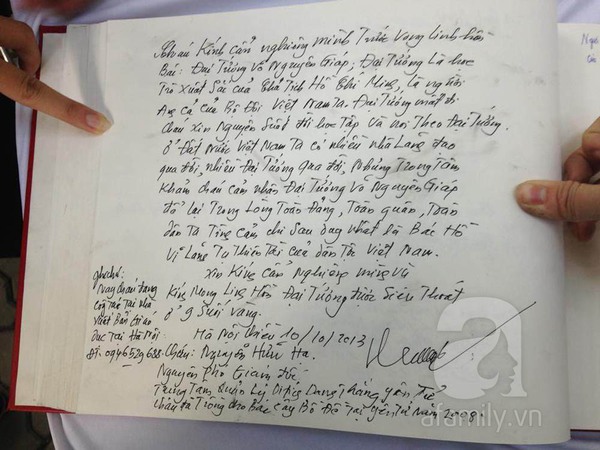 Cháu Kính cẩn nghiêng mình Trước vong linh hồn
Bác: Đại Tướng Võ Nguyên Giáp; Đại Tướng Là học
Trò xuất sắc của Chủ Tịch Hồ Chí Minh, là người
Anh cả của Bộ Đội Việt Nam Ta. Đại Tướng mất đi
cháu xin Nguyện Suốt đời học Tập và noi Theo Đại Tướng.
ở Đất Nước Việt Nam Ta có nhiều nhà Lãnh đạo
qua đời, nhiều Đại Tướng qua đời, Nhưng Trong Tâm
Khảm cháu cảm nhận Đại Tướng Võ Nguyên Giáp
để lại Trong Lòng Toàn Đảng, Toàn quân, Toàn
dân Ta Tình cảm chỉ sau duy nhất là Bác Hồ
Vị Lãnh Tụ Thiên Tài của dân Tộc Việt Nam.
xin Kính cẩn Nghiêng mình và
Kính Mong Linh Hồn Đại Tướng được Siêu Thoát
ở 9 Suối Vàng.
Hà Nội chiều 10/10/2013
Cháu: Nguyễn Hữu Hà.
Nguyên Phó Giám đốc
Trung Tâm Quản Lý Di tích Danh Thắng Yên Tử
cháu đã Trồng cho Bác cây Bồ Đề Tại Yên Tử Năm 2008
ghi chú:
Nay cháu đang
công tác Tại Nhà
xuất Bản Giáo
Dục Tại Hà Nội
ĐT: 0946529688
afamily.vn